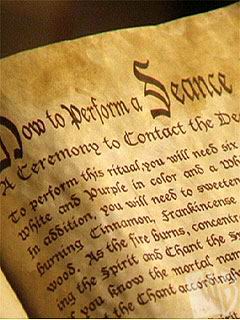 How to Perform a Seance
A Ceremony to Contact the De
To perform this ritual, you will need six
white and Purple in color and a Wh
In addition, you will need to sweeten
burning Cinnamon, Frankincense
wood. As the fire burns, concentr
ing the Spirit and Chant the S
you know the mortal nam
the Chant accordingl